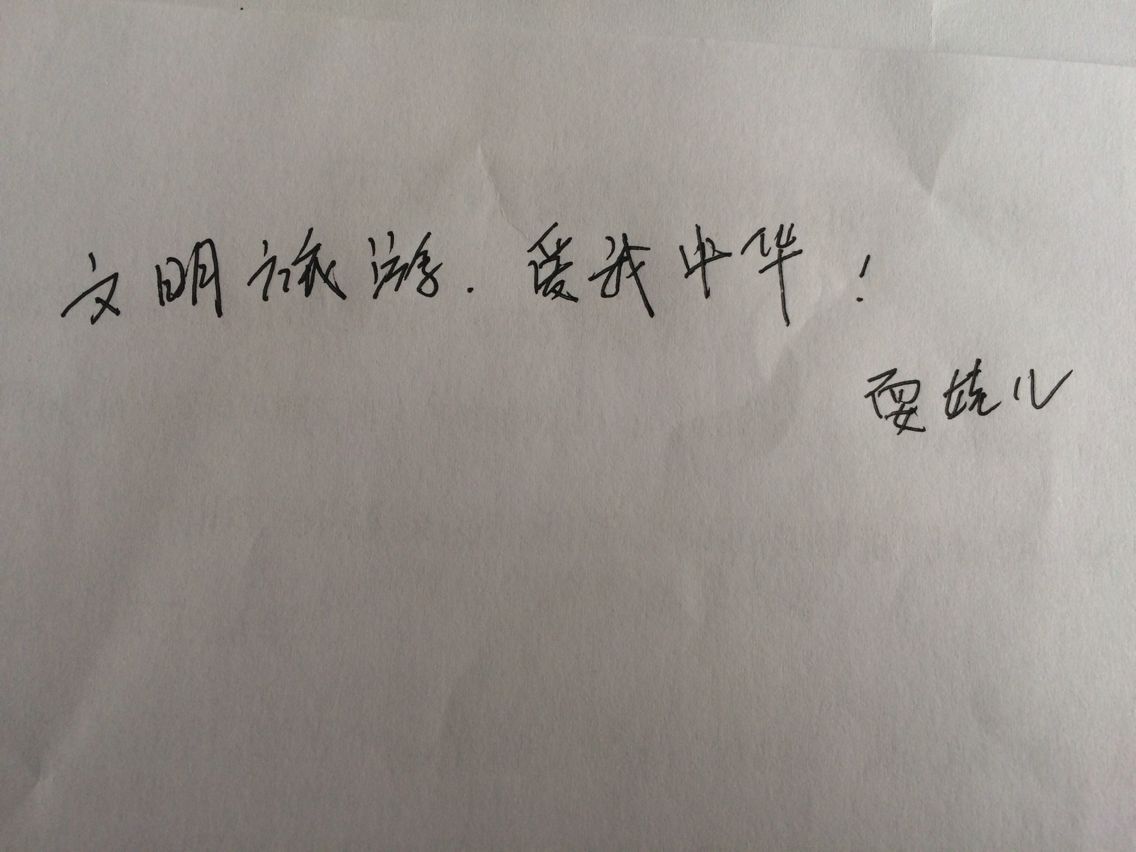 文明旅游.爱我中华!
耍娆儿